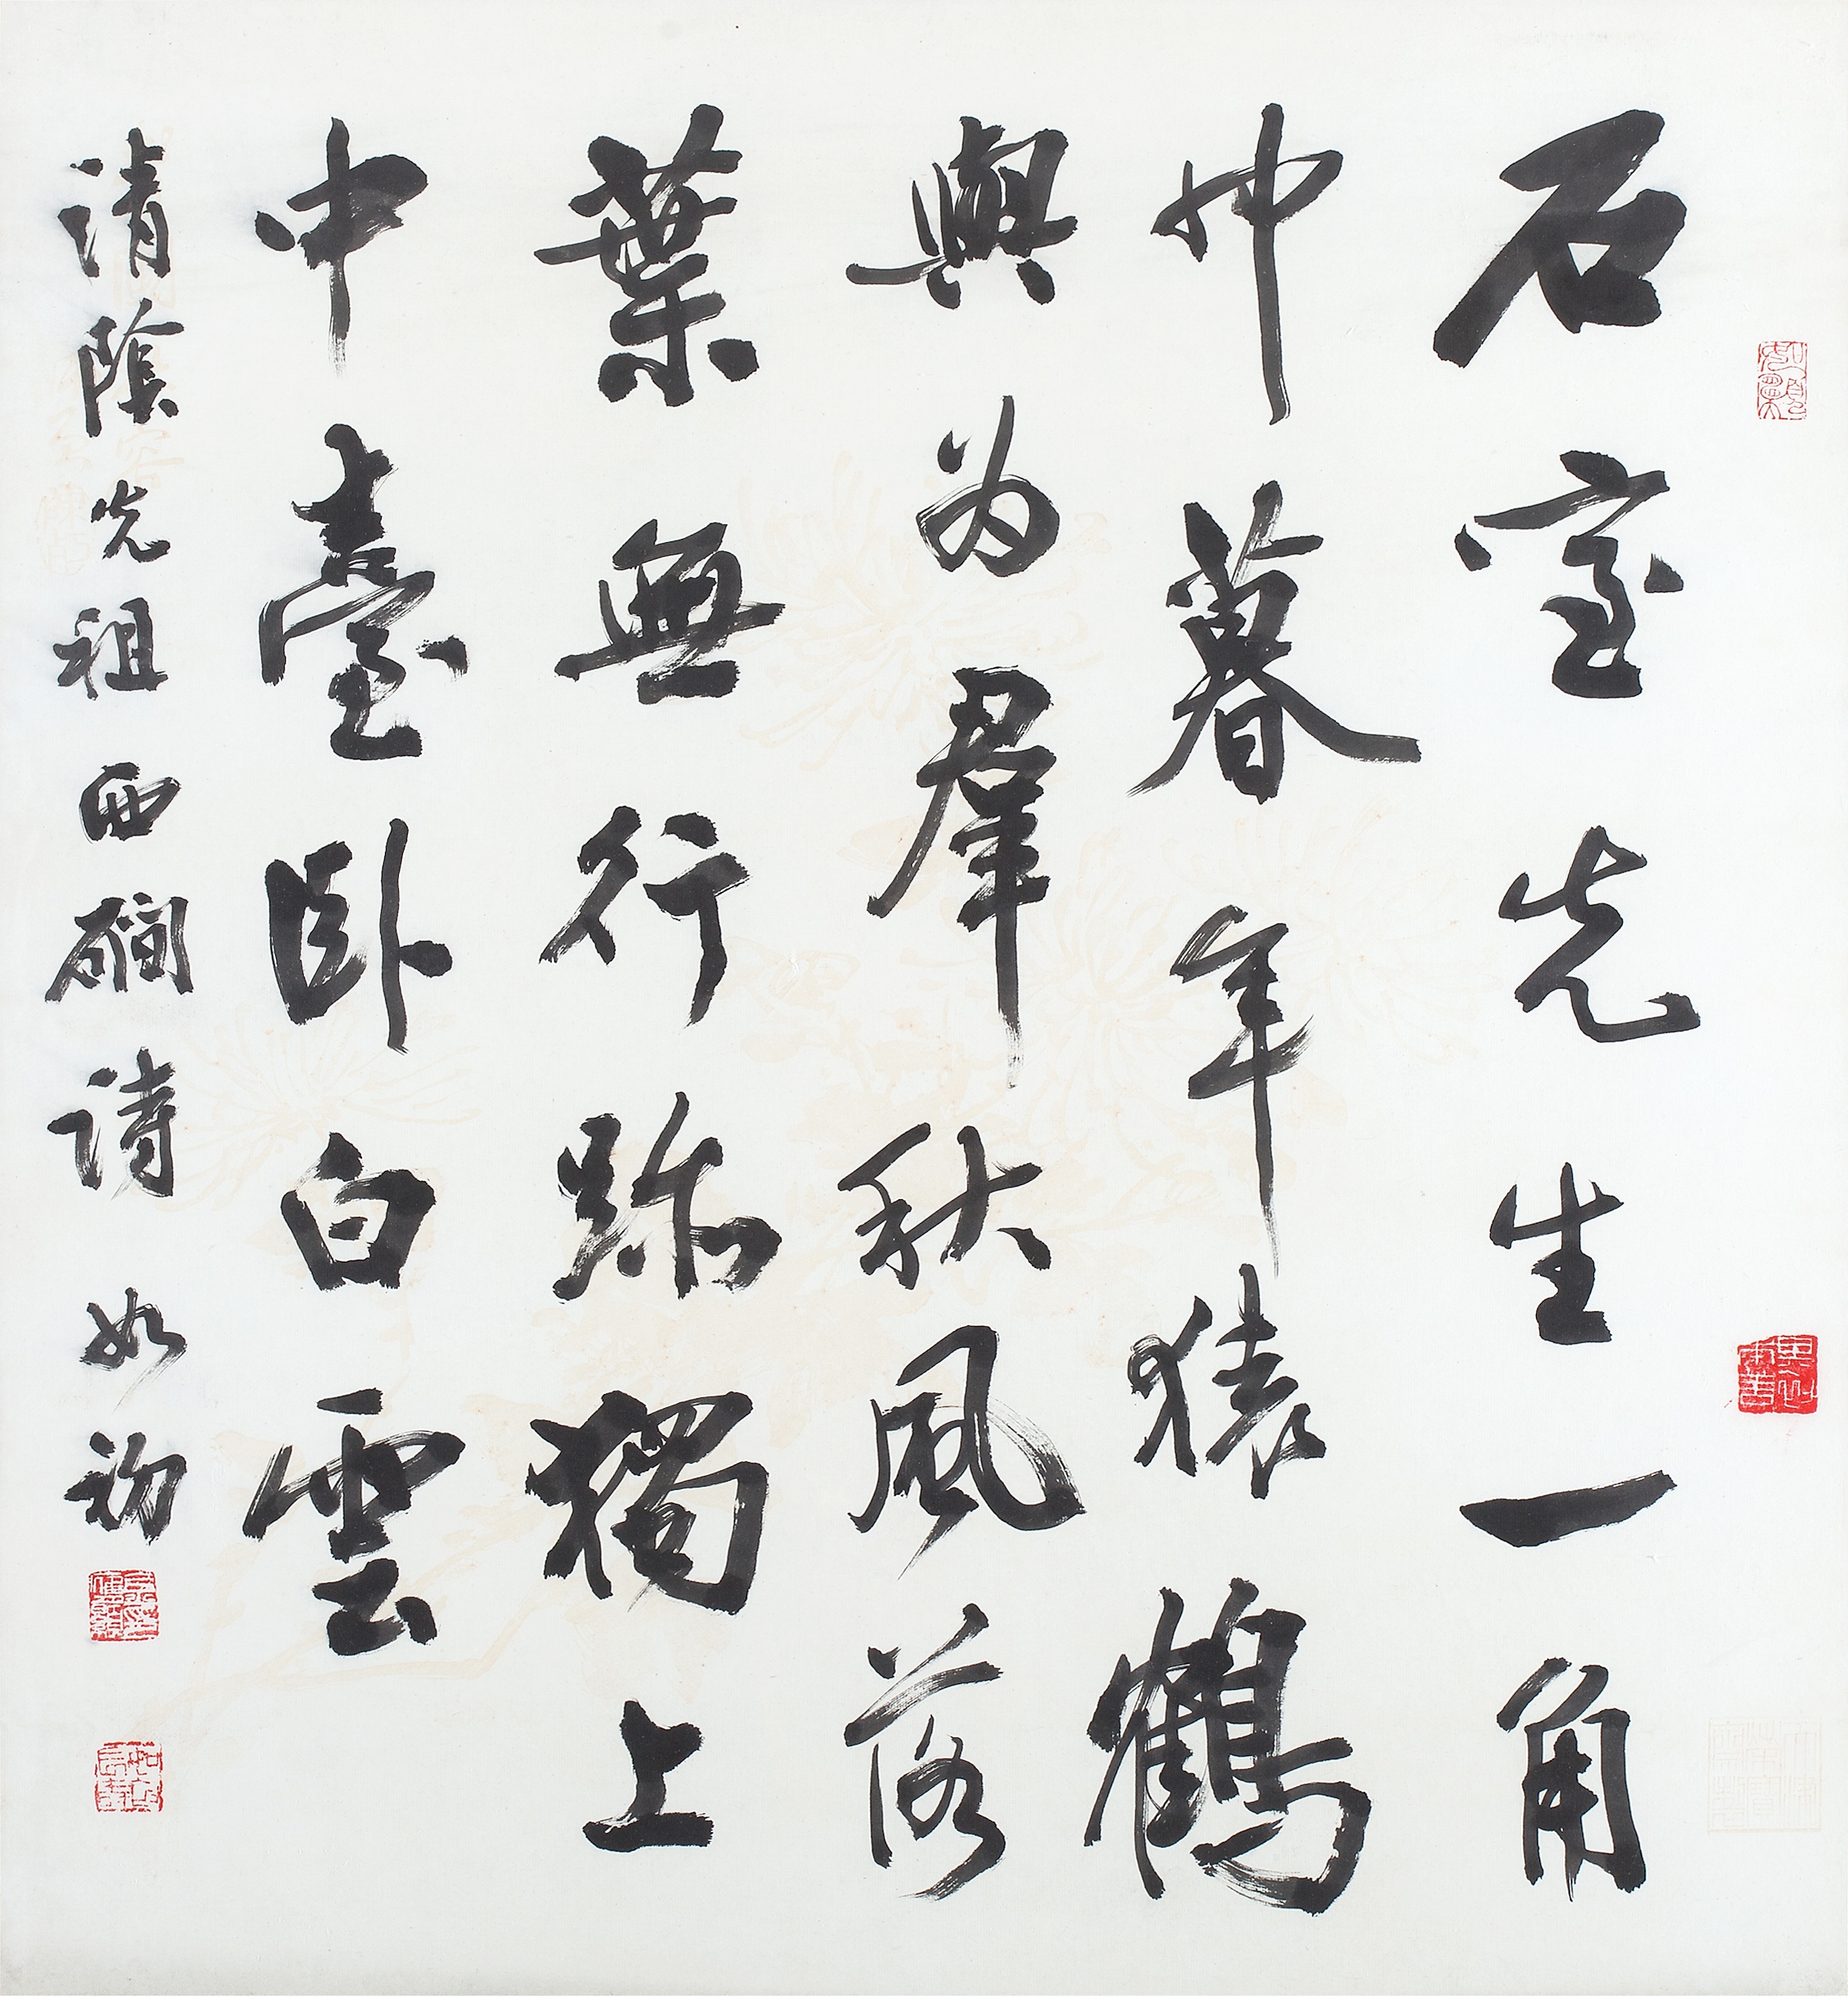 石室先生一角
巾暮年猿鶴
與为羣秋風落
葉無行跡獨上
中臺卧白雲
清陰先祖西磵詩 如初